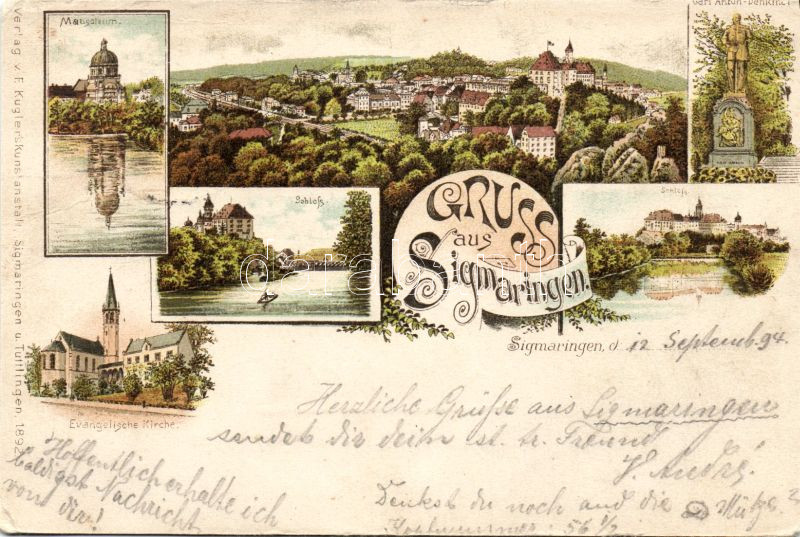 Mausoleum.
Carl Anton-Denkmal
Verlag v. F. Kuglers Kunstanstalt, Sigmaringen u. Tuttlingen, 1892
Schloß.
Schloß.
GRUSS
aus
Sigmaringen.
darabanth.com
Evangelische Kirche.
Sigmaringen, d. 12 Septemb. 94.
Herzliche Grüße aus Sigmaringen
sendet dir dein st. tr. Freund
J. André.
Hoffentlich erhalte ich
baldigst Nachricht
von dir!
Denkst du noch and die Mütze?
56 1/2